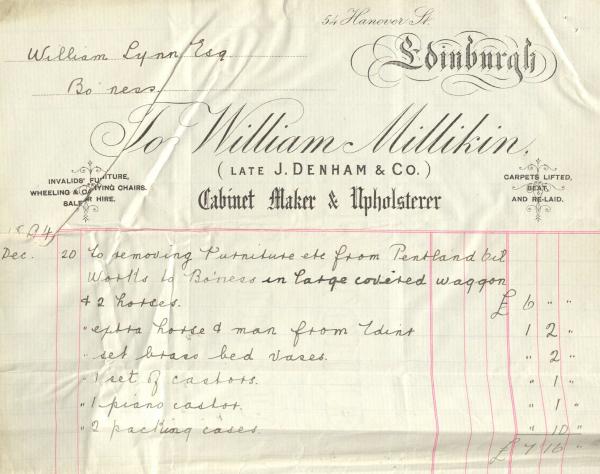 54 Hanover St.
Edinburgh
William Lynn Esq
Bo'ness
To William Millikin.
(LATE J. DENHAM & CO.)
Cabinet Maker & Upholsterer
INVALIDS' FURNITURE,
WHEELING & CARRYING CHAIRS.
SALE OR HIRE.
CARPETS LIFTED,
BEAT,
AND RE-LAID.
Dec. 20 To removing furniture etc from Pentland Oil
Works to Bo'ness in large covered waggon
& 2 horses. £ 6 " "
" extra horse & man from Edinr 1 2 "
" set brass bed vases. " 2 "
" 1 set of castors. " 1 "
" 1 piano castor. " 1 "
" 2 packing cases. " 10 "
£ 7 16 "